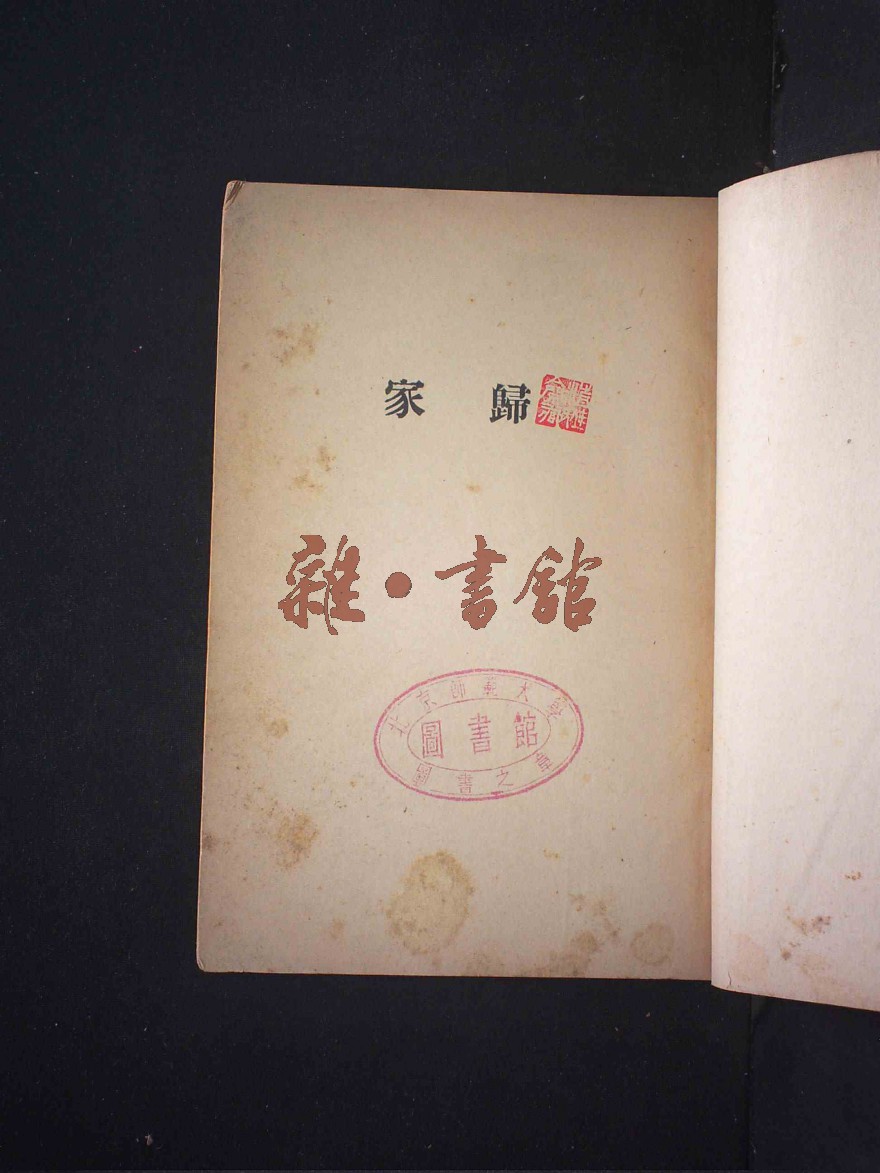 歸家
雜•書館
北京師範大學
圖書館
圖書之章